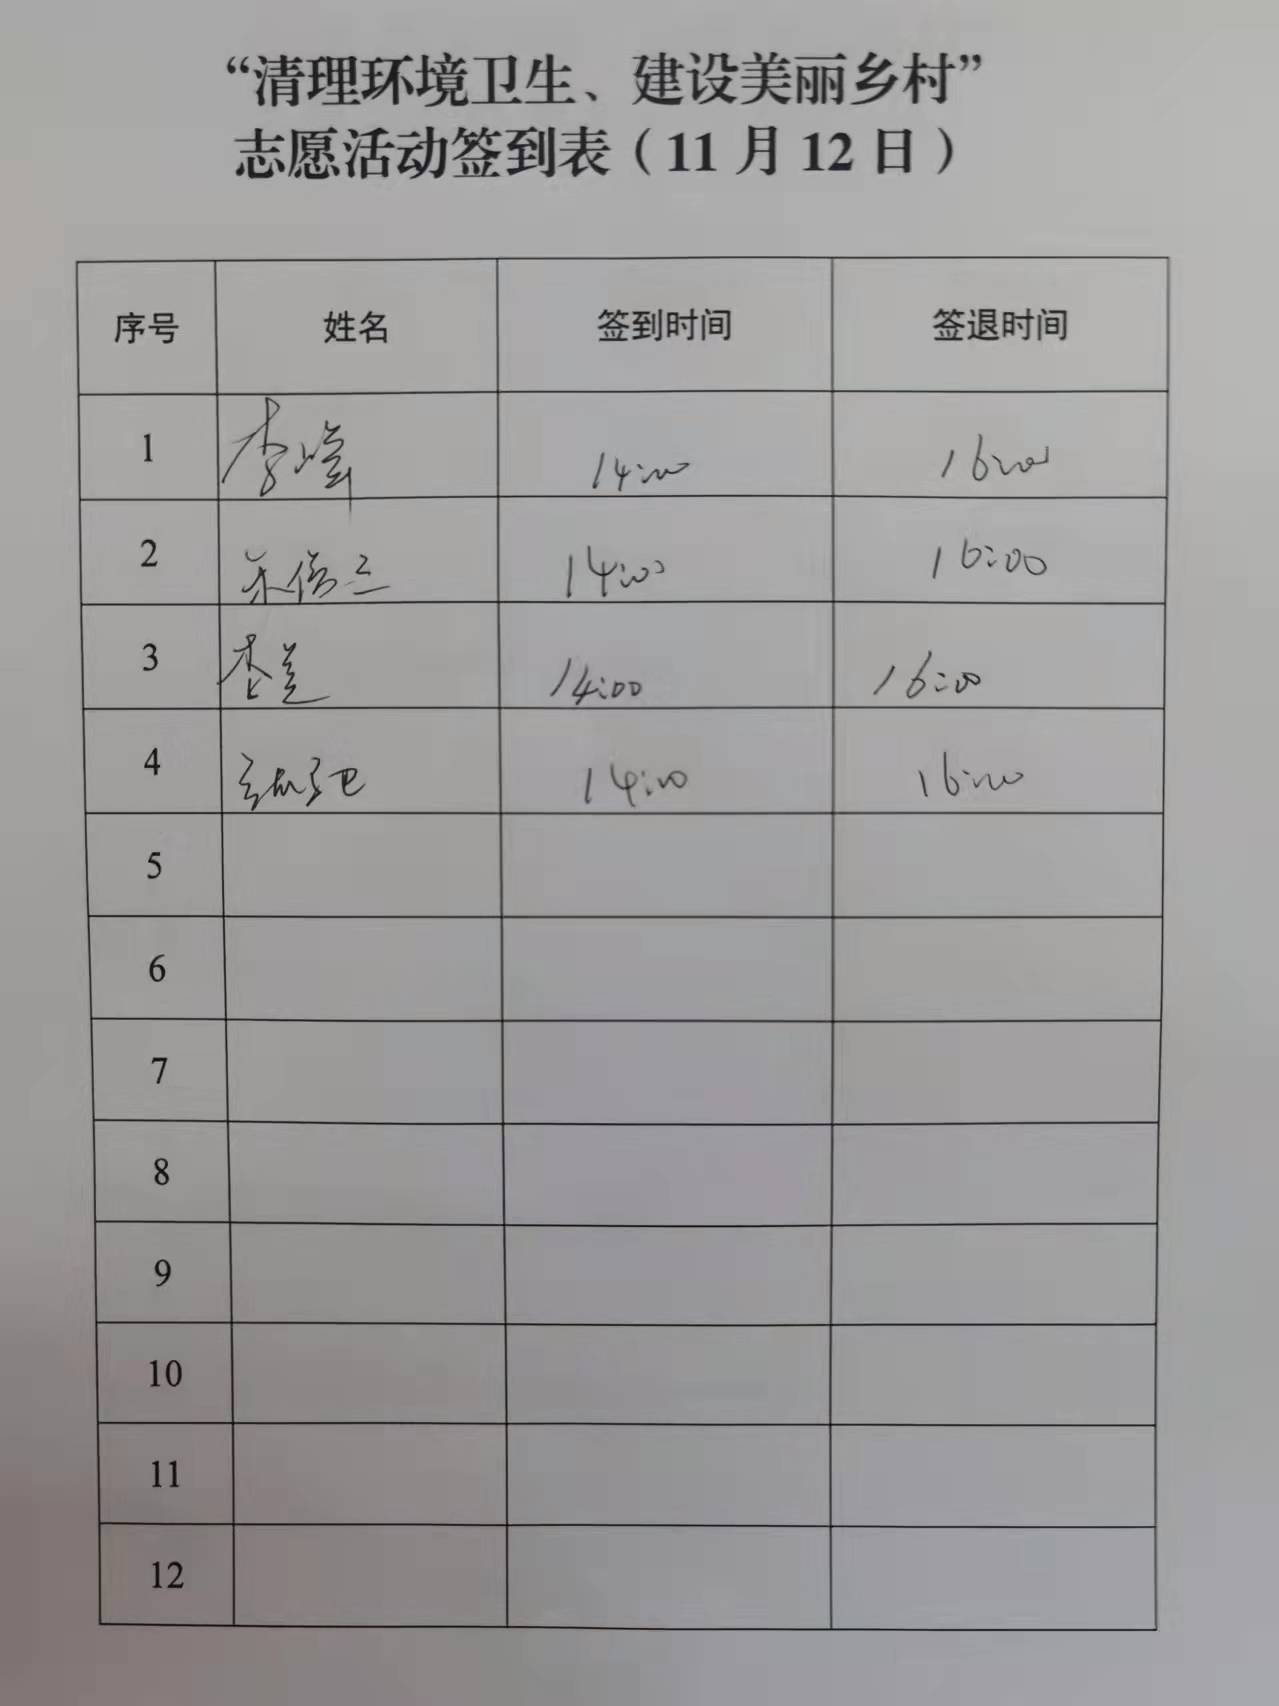 “清理环境卫生、建设美丽乡村”
志愿活动签到表（11月12日）
序号 姓名 签到时间 签退时间
1 李峰 14:00 16:00
2 14:00 16:00
3 14:00 16:00
4 14:00 16:00
5
6
7
8
9
10
11
12